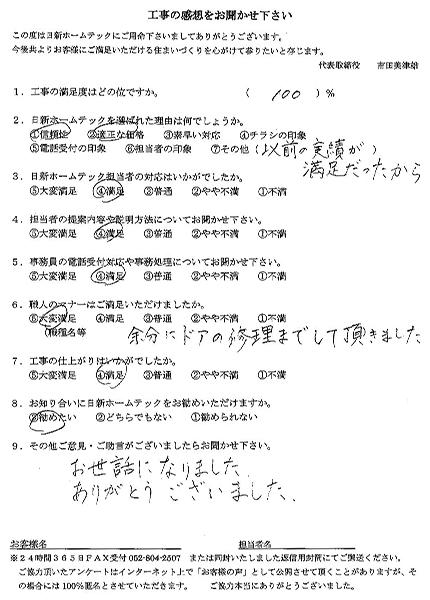 工事の感想をお聞かせ下さい
この度は日新ホームテックにご用命下さいましてありがとうございます。
今後共よりお客様にご満足いただける住まいづくりを心がけて参りたいと存じます。
代表取締役 吉田美津雄
1．工事の満足度はどの位ですか。 （ 100 ）％
2．日新ホームテックを選ばれた理由は何でしょうか。
①信頼性 ②適正な価格 ③素早い対応 ④チラシの印象
⑤電話受付の印象 ⑥担当者の印象 ⑦その他（以前の実績が）
満足だったから
3．日新ホームテック担当者の対応はいかがでしたか。
⑤大変満足 ④満足 ③普通 ②やや不満 ①不満
4．担当者の提案内容や説明方法についてお聞かせ下さい。
⑤大変満足 ④満足 ③普通 ②やや不満 ①不満
5．事務員の電話受付対応や事務処理についてお聞かせ下さい。
⑤大変満足 ④満足 ③普通 ②やや不満 ①不満
6．職人のマナーはご満足いただけましたか。
⑤大変満足 ④満足 ③普通 ②やや不満 ①不満
(職種名等 余分にドアの修理までして頂きました
7．工事の仕上がりはいかがでしたか。
⑤大変満足 ④満足 ③普通 ②やや不満 ①不満
8．お知り合いに日新ホームテックをお勧めいただけますか。
③勧めたい ②どちらでもない ①勧められない
9．その他ご意見・ご助言がございましたらお聞かせ下さい。
お世話になりました、
ありがとうございました、
お客様名 担当者名
※24時間365日FAX受付 052-804-2507 または同封いたしました返信用封筒にてご郵送ください。
ご協力頂いたアンケートはインターネット上で「お客様の声」として公開させて頂くことがありますが、そ
の場合には100％匿名とさせていただきます。 ご協力本当にありがとうございました。